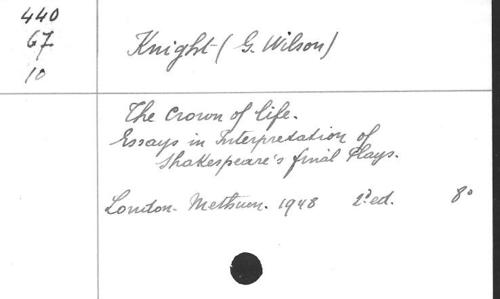 440
67
10
Knight (G. Wilson)
The Crown of life.
Essays in Interpretation of
Shakespeare's final Plays.
London. Methuen. 1948 2ᵈ ed. 8°